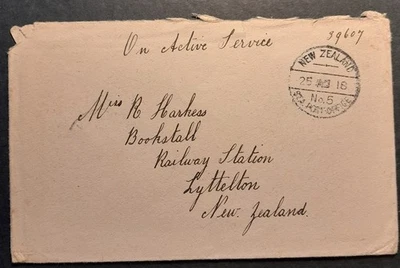 On Active Service
39607
NEW ZEALAND
25 18
No. 5
Miss R Harkess
Bookstall
Railway Station
Lyttelton
New Zealand.